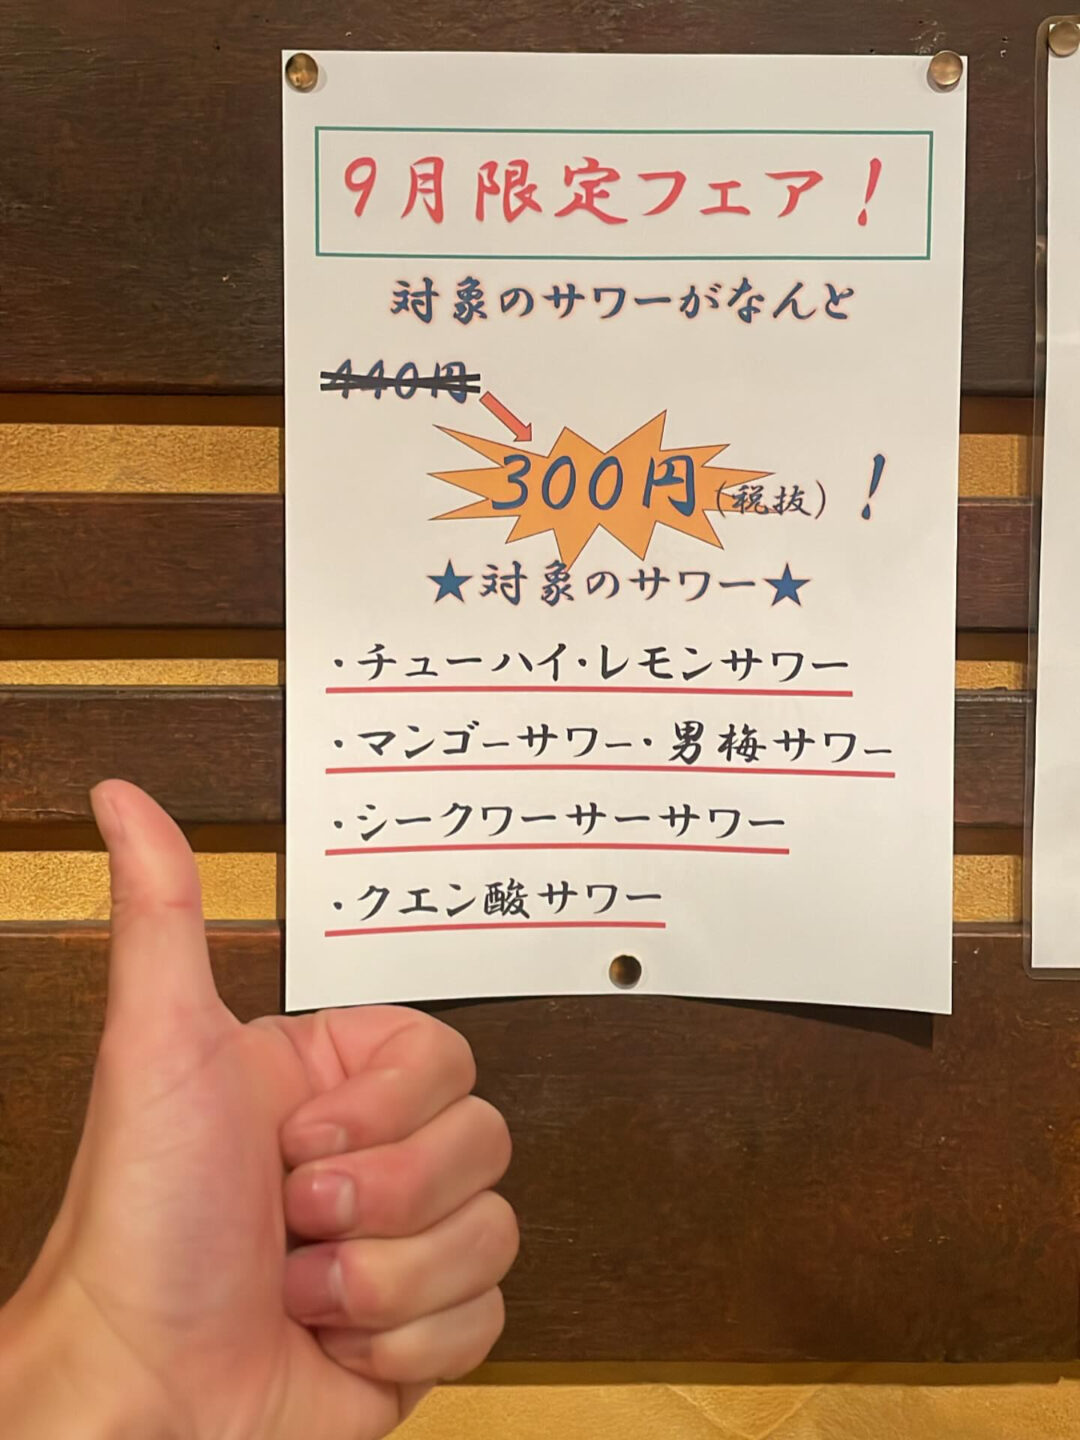 9月限定フェア！
対象のサワーがなんと
440円
300円(税抜)！
★対象のサワー★
・チューハイ・レモンサワー
・マンゴーサワー・男梅サワー
・シークワーサーサワー
・クエン酸サワー